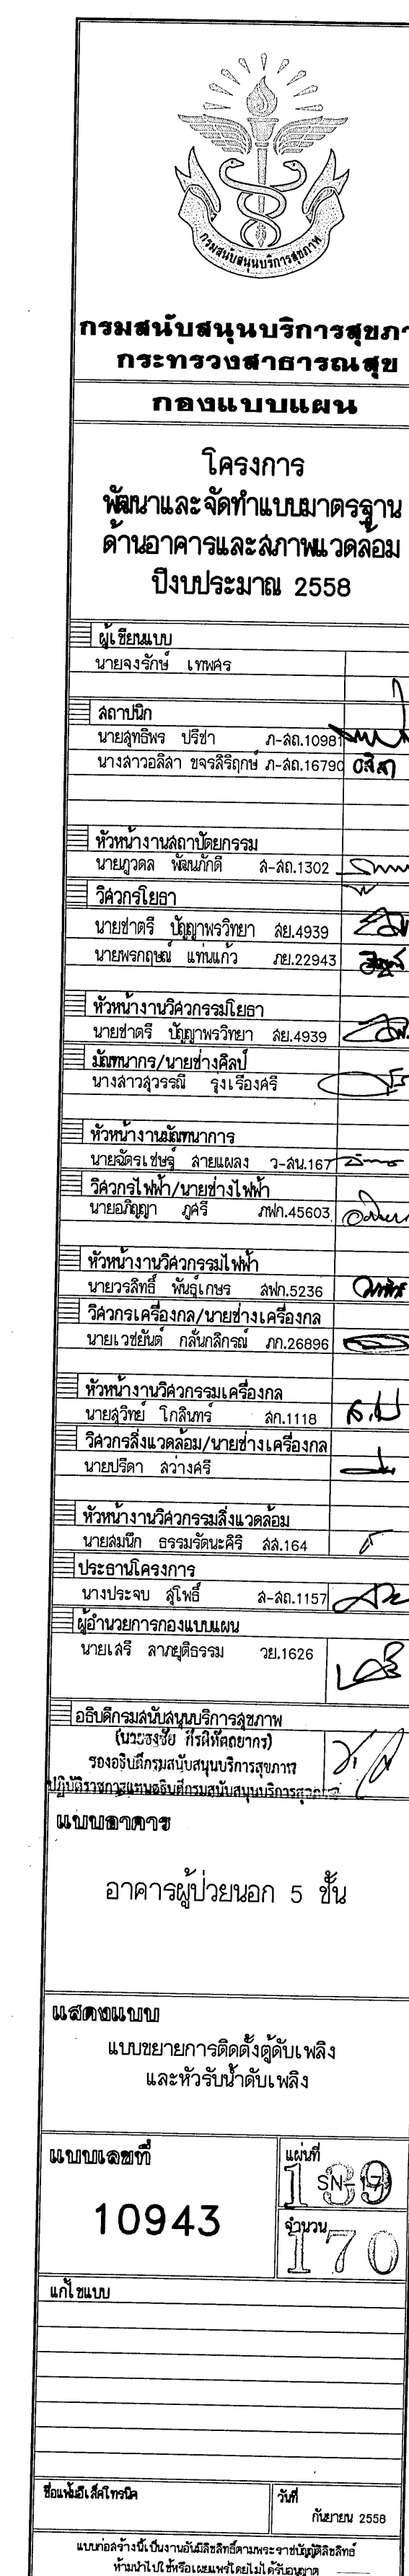 กรมสนับสนุนบริการสุขภาพ
กรมสนับสนุนบริการสุขภา
กระทรวงสาธารณสุข
กองแบบแผน
โครงการ
พัฒนาและจัดทำแบบมาตรฐาน
ด้านอาคารและสภาพแวดล้อม
ปีงบประมาณ 2558
ผู้เขียนแบบ
นายจงรักษ์ เทพศร
สถาปนิก
นายสุทธิพร ปรีชา ภ-สถ.10981
นางสาวอลิสา ขจรสิริฤกษ์ ภ-สถ.16790 อลิสา
หัวหน้างานสถาปัตยกรรม
นายภูวดล พัฒนภักดี ส-สถ.1302
วิศวกรโยธา
นายชาตรี ปัญญาพรวิทยา สย.4939
นายพรกฤษณ์ แท่นแก้ว ภย.22943
หัวหน้างานวิศวกรรมโยธา
นายชาตรี ปัญญาพรวิทยา สย.4939
มัณฑนากร/นายช่างศิลป์
นางสาวสุวรรณี รุงเรืองศรี
หัวหน้างานมัณฑนาการ
นายฉัตรเชษฐ์ สายแผลง ว-สน.167
วิศวกรไฟฟ้า/นายช่างไฟฟ้า
นายอภิญญา ภูศรี ภฟก.45603
หัวหน้างานวิศวกรรมไฟฟ้า
นายวรสิทธิ์ พันธุ์เกษร สฟก.5236
วิศวกรเครื่องกล/นายช่างเครื่องกล
นายเวชยันต์ กลั่นกสิกรณ์ ภก.26896
หัวหน้างานวิศวกรรมเครื่องกล
นายสุวิทย์ โกสินทร์ สก.1118
วิศวกรสิ่งแวดล้อม/นายช่างเครื่องกล
นายปรีดา สว่างศรี
หัวหน้างานวิศวกรรมสิ่งแวดล้อม
นายสมนึก ธรรมรัตนะคิริ สส.164
ประธานโครงการ
นางประจบ สุโพธิ์ ส-สถ.1157
ผู้อำนวยการกองแบบแผน
นายเสรี ลาภยุติธรรม วย.1626
อธิบดีกรมสนับสนุนบริการสุขภาพ
รองอธิบดีกรมสนับสนุนบริการสุขภาพ
ปฏิบัติราชการแทนอธิบดีกรมสนับสนุนบริการสุขภาพ
แบบอาคาร
อาคารผู้ป่วยนอก 5 ชั้น
แสดงแบบ
แบบขยายการติดตั้งตู้ดับเพลิง
และหัวรับน้ำดับเพลิง
แบบเลขที่
แผ่นที่
139
SN-17
10943
จำนวน
170
แก้ไขแบบ
ชื่อแฟ้มอิเล็คโทรนิค
วันที่
กันยายน 2558
แบบก่อสร้างนี้เป็นงานอันมีลิขสิทธิ์ตามพระราชบัญญัติลิขสิทธิ์
ห้ามนำไปใช้หรือเผยแพร่โดยไม่ได้รับอนุญาต